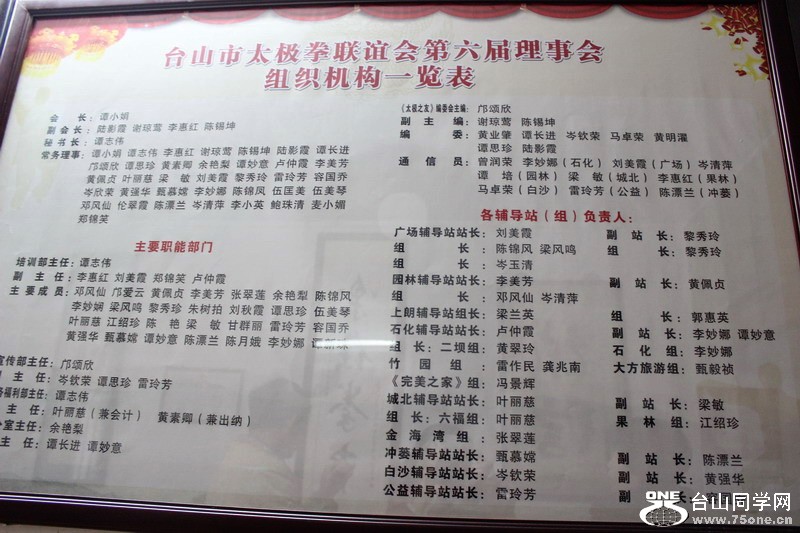 台山市太极拳联谊会第六届理事会
组织机构一览表
会长：谭小娟
副会长：陆影霞 谢琼莺 李惠红 陈锡坤
秘书长：谭志伟
常务理事：谭小娟 谭志伟 李惠红 谢琼莺 陈锡坤 陆影霞 谭长进
邝颂欣 谭思珍 黄素卿 余艳梨 谭妙意 卢仲霞 李美芳
黄佩贞 叶丽慈 梁敏 刘美霞 黎秀玲 雷玲芳 容国乔
岑欣荣 黄强华 甄慕嫦 李妙娜 陈锦凤 伍匡美 伍美琴
邓风仙 伦翠霞 陈漂兰 岑清萍 李小英 鲍珠清 麦小媚
郑锦笑
主要职能部门
培训部主任：谭志伟
副主任：李惠红 刘美霞 郑锦笑 卢仲霞
主要成员：邓风仙 邝爱云 黄佩贞 李美芳 张翠莲 余艳梨 陈锦风
李妙娴 梁风鸣 黎秀珍 朱树拍 刘秋霞 谭思珍 伍美琴
叶丽慈 江绍珍 陈艳 梁敏 甘群丽 雷玲芳 容国乔
黄强华 甄慕嫦 谭妙意 陈漂兰 陈月娥 李妙娜
宣传部主任：邝颂欣
主任：岑钦荣 谭思珍 雷玲芳
福利部主任：谭志伟
主任：叶丽慈（兼会计） 黄素卿（兼出纳）
室主任：余艳梨
主任：谭长进 谭妙意
《太极之友》编委会主编：邝颂欣
副主编：谢琼莺 陈锡坤
编委：黄业肇 谭长进 岑钦荣 马卓荣 黄明濯
谭思珍 陆影霞
通信员：曾润荣 李妙娜（石化） 刘美霞（广场） 岑清萍
谭培（园林） 梁敏（城北） 李惠红（果林）
马卓荣（白沙） 雷玲芳（公益） 陈漂兰（冲蒌）
各辅导站（组）负责人：
广场辅导站站长：刘美霞 副站长：黎秀玲
组长：陈锦风 梁风鸣 组长：黎秀玲
组长：岑玉清
园林辅导站站长：李美芳 副站长：黄佩贞
组长：邓风仙 岑清萍
上朗辅导站组长：梁兰英 组长：郭惠英
石化辅导站站长：卢仲霞 副站长：李妙娜 谭妙意
组长：二坝组：黄翠玲 石化组：李妙娜
竹园组：雷作民 龚兆南 大方旅游组：甄毅祯
《完美之家》组：冯景辉
城北辅导站站长：叶丽慈 副站长：梁敏
组长：六福组：叶丽慈 果林组：江绍珍
金海湾组：张翠莲
冲蒌辅导站站长：甄慕嫦 副站长：陈漂兰
白沙辅导站站长：岑钦荣 副站长：黄强华
公益辅导站站长：雷玲芳 副站长：
ONE 台山同学网
www.75one.cn